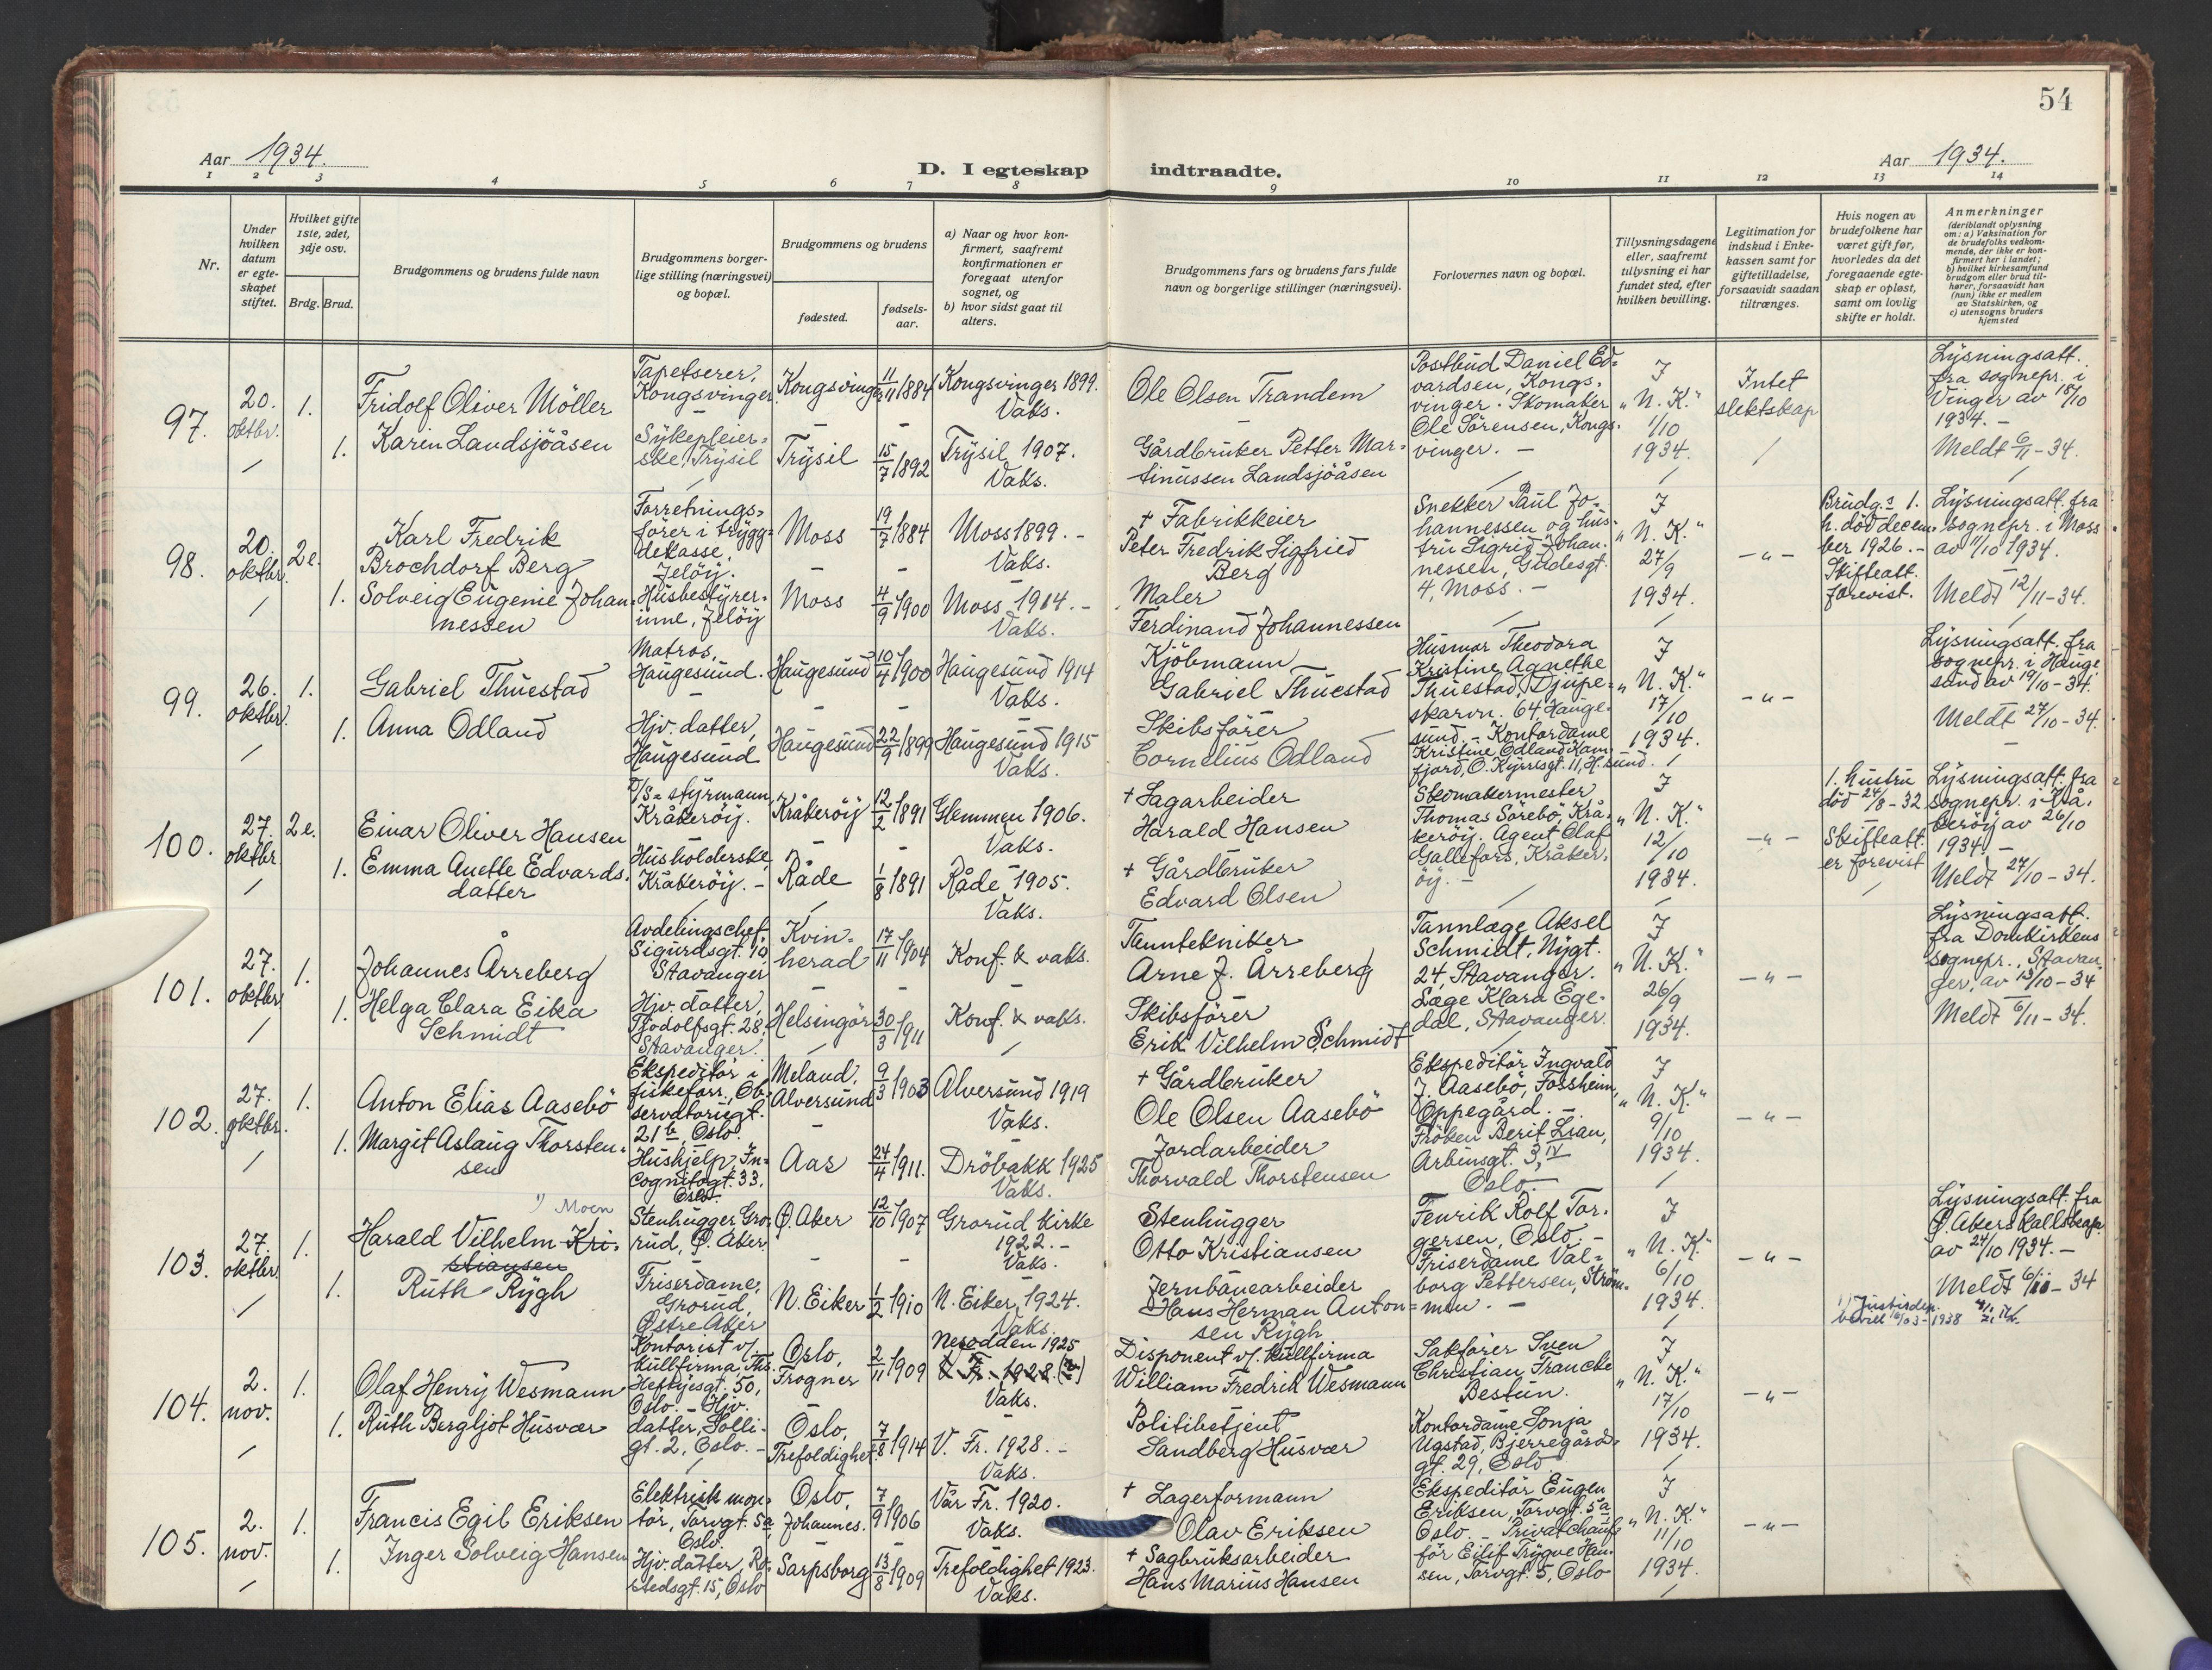 54
Aar 1934.
D. I egteskap indtraadte.
Aar 1934.
1 2 3 4 5 6 7 8 9 10 11 12 13 14
Nr.
Under hvilken datum er egteskapet stiftet.
Hvilket gifte 1ste, 2det, 3dje osv.
Brdg. Brud.
Brudgommens og brudens fulde navn
Brudgommens borgerlige stilling (næringsvei) og bopæl.
Brudgommens og brudens
fødested.
fødselsaar.
a) Naar og hvor konfirmert, saafremt konfirmationen er foregaat utenfor sognet, og
b) hvor sidst gaat til alters.
Brudgommens fars og brudens fars fulde navn og borgerlige stillinger (næringsvei).
Forlovernes navn og bopæl.
Tillysningsdagene eller, saafremt tillysning ei har fundet sted, efter hvilken bevilling.
Legitimation for indskud i Enkekassen samt for giftetilladelse, forsaavidt saadan tiltrænges.
Hvis nogen av brudefolkene har været gift før, hvorledes da det foregaaende egteskap er opløst, samt om lovlig skifte er holdt.
Anmerkninger
(deriblandt oplysning om: a) Vaksination for de brudefolks vedkommende, der ikke er konfirmert her i landet;
b) hvilket kirkesamfund brudgom eller brud tilhører, forsaavidt han (hun) ikke er medlem av Statskirken, og
c) utensogns bruders hjemsted
97.
20. oktbr.
1.
Fridolf Oliver Möller
Tapetserer, Kongsvinger
Kongsvinger
11/11 1884
Kongsvinger 1899. Vaks.
Ole Olsen Trandem
Postbud Daniel Edvardsen, Kongsvinger. Skomaker Ole Sörensen, Kongsvinger. –
I "N. K." 1/10 1934.
Intet slektskap
Lysningsatt. fra sognepr. i Vinger av 18/10 1934. –
Meldt 6/11 – 34.
1.
Karen Landsjöåsen
Sykepleierske, Trysil
Trysil
15/7 1892
Trysil 1907. Vaks.
Gårdbruker Petter Martinussen Landsjöåsen
98.
20. oktbr.
2e.
Karl Fredrik Brochdorf Berg
Forretningsförer i tryggdekasse, Jelöy.
Moss
19/7 1884
Moss 1899. – Vaks.
† Fabrikkeier Peter Fredrik Sigfried Berg
Snekker Paul Johannessen og hustru Sigrid Johannessen, Gudesgt. 4, Moss. –
I "N. K." 27/9 1934.
– " –
Brudg.s 1. h. död december 1926. – Skifteatt. forevist.
Lysningsatt. fra sognepr. i Moss av 11/10 1934.
Meldt 12/11 – 34.
1.
Solveig Eugenie Johannessen
Husbestyrerinne, Jelöy
Moss
4/9 1900
Moss 1914. – Vaks.
Maler Ferdinand Johannessen
99.
26. oktbr.
1.
Gabriel Thuestad
Matros, Haugesund.
Haugesund
10/4 1900
Haugesund 1914 Vaks.
Kjöbmann Gabriel Thuestad
Husmor Theodora Kristine Agnethe Thuestad, Djupeskarvn. 64, Haugesund. – Kontordame Kristine Odland Kamfjord, O. Kyrresgt. 11, H.sund.
I "N. K." 17/10 1934.
– " –
Lysningsatt. fra sognepr. i Haugesund av 19/10 – 34.
Meldt 27/10 – 34.
1.
Anna Odland
Hjv. datter, Haugesund
Haugesund
22/9 1899
Haugesund 1915 Vaks.
Skibsförer Cornelius Odland
100.
27. oktbr.
2e.
Einar Oliver Hansen
D/S = styrmann, Kråkeröy.
Kråkeröy
12/2 1891
Glemmen 1906. Vaks.
† Sagarbeider Harald Hansen
Skomakermester Thomas Sörebö, Kråkeröy. Agent Olaf Gallefors, Kråkeröy. –
I "N. K." 12/10 1934.
– " –
1. hustru död 24/8 – 32 Skifteatt. er forevist
Lysningsatt. fra sognepr. i Kråkeröy av 26/10 1934. –
Meldt 27/10 – 34.
1.
Emma Anette Edvardsdatter
Husholderske, Kråkeröy. –
Råde
1/8 1891
Råde 1905. Vaks.
† Gårdbruker Edvard Olsen
101.
27. oktbr.
1.
Johannes Årreberg
Avdelingschef Sigurdsgt. 10, Stavanger
Kvinherad
17/11 1904
Konf. & vaks.
Tanntekniker Arne J. Årreberg
Tannlæge Aksel Schmidt, Nygt. 24, Stavanger. Læge Klara Egedal, Stavanger.
I "N. K." 26/9 1934.
– " –
Lysningsatt. fra Domkirkens sognepr., Stavanger, av 13/10 – 34
Meldt 6/11 – 34.
1.
Helga Clara Eika Schmidt
Hjv. datter, Tjodolfsgt. 28, Stavanger.
Helsingör
30/3 1911
Konf. & vaks.
Skibsförer Erik Vilhelm Schmidt
102.
27. oktbr.
1.
Anton Elias Aasebö
Ekspeditör i fiskeforr., Observatoriegt. 21b, Oslo.
Meland, Alversund
9/3 1903
Alversund 1919 Vaks.
† Gårdbruker Ole Olsen Aasebö
Ekspeditör Ingvald J. Aasebö, Fossheim, Oppegård. – Fröken Berit Lian, Arbinsgt. 3, IV Oslo. –
I "N. K." 9/10 1934.
– " –
1.
Margit Aslaug Thorstensen
Hushjelp, Incognitogt. 33, Oslo.
Aas
24/4 1911.
Dröbakk 1925 Vaks.
Jordarbeider Thorvald Thorstensen
103.
27. oktbr.
1.
1) Moen
Harald Vilhelm Kristiansen
Stenhugger, Grorud, Ö. Aker.
Ö. Aker
12/10 1907
Grorud kirke 1922. – Vaks.
Stenhugger Otto Kristiansen
Fenrik Rolf Torgersen, Oslo. – Friserdame Valborg Pettersen, Strömmen. –
I "N. K." 6/10 1934.
– " –
Lysningsatt. fra Ö. Akers kallskap. av 24/10 1934. –
Meldt 6/11 – 34
1.
Ruth Rygh
Friserdame, Grorud, Östre Aker
N. Eiker
1/2 1910
N. Eiker, 1924. Vaks.
Jernbanearbeider Hans Herman Antonsen Rygh
1) Justisdep. bevill 16/03 – 1938
104.
2. nov.
1.
Olaf Henry Wesmann
Kontorist v/. kullfirma, Ths. Heftyesgt. 50, Oslo. –
Oslo, Frogner
2/11 1909
Nesodden 1925 V. Fr. 1928. Vaks.
Disponent v/. kullfirma William Fredrik Wesmann
Sakförer Sven Christian Francke Bestun.
Kontordame Sonja Ugstad, Bjerregårdsgt. 29, Oslo
I "N. K." 17/10 1934.
– " –
1.
Ruth Bergljot Husvær
Hjv. datter, Solligt. 2, Oslo. –
Oslo, Trefoldighet.
7/8 1914
V. Fr. 1928. – Vaks.
Politibetjent Sandberg Husvær
105.
2. nov.
1.
Francis Egil Eriksen
Elektrisk montör, Torvgt. 5a Oslo.
Oslo, Johannes.
7/9 1906
Vår Fr. 1920. Vaks.
† Lagerformann Olav Eriksen
Ekspeditör Eugen Eriksen, Torvgt. 5a Oslo. – Privatchaufför Eilif Trygve Hansen, Torvgt. 5, Oslo
I "N. K." 11/10 1934.
– " –
1.
Inger Solveig Hansen
Hjv. datter, Rostedsgt. 15, Oslo
Sarpsborg
13/8 1909
Trefoldighet 1923. Vaks.
† Sagbruksarbeider Hans Marius Hansen